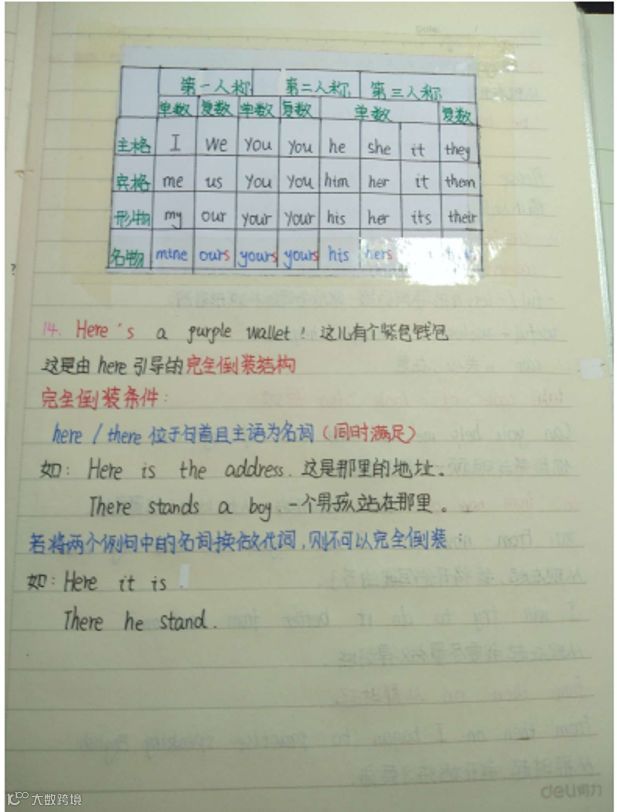 第一人称 第二人称 第三人称
单数 复数 单数 复数 单数 复数
主格 I we you you he she it they
宾格 me us you you him her it them
形物 my our your your his her its their
名物 mine ours yours yours his hers
14. Here's a purple wallet! 这儿有个紫色钱包
这是由 here 引导的完全倒装结构
完全倒装条件:
here / there 位于句首且主语为名词(同时满足)
如: Here is the address. 这是那里的地址。
There stands a boy. 一个男孩站在那里。
若将两个例句中的名词换做代词,则不可以完全倒装:
如: Here it is
There he stand.
deli得力
大数跨境